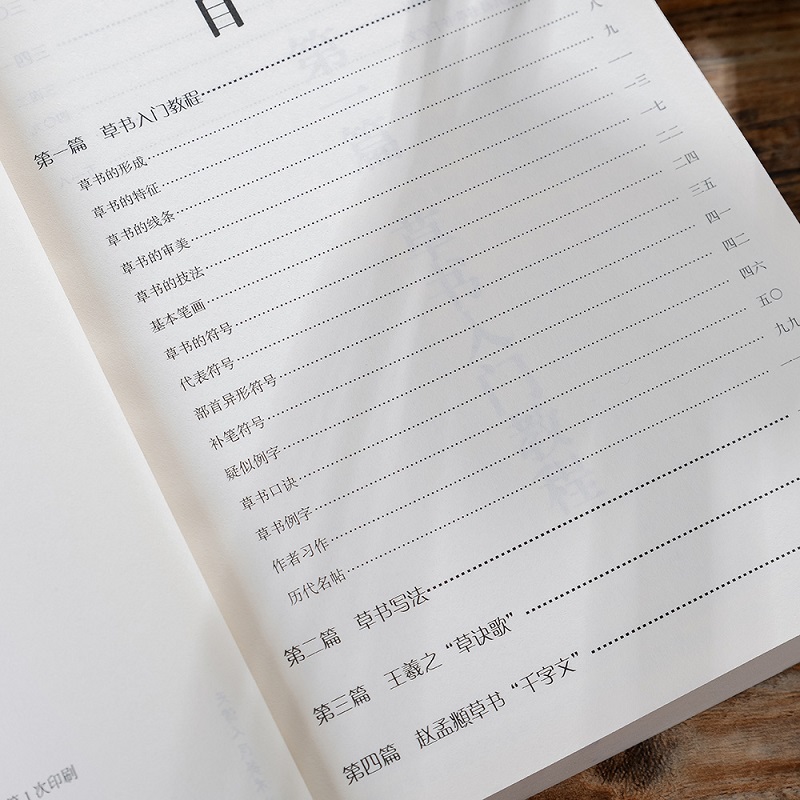 目
第一篇 草书入门教程
草书的形成
草书的特征 八
草书的线条 九
草书的审美 一一
草书的技法 一三
基本笔画 一七
草书的符号 二二
代表符号 二四
部首异形符号 三五
补笔符号 四一
疑似例字 四二
草书口诀 四六
草书例字 五〇
作者习作 九九
历代名帖
第二篇 草书写法
第三篇 王羲之“草诀歌”
第四篇 赵孟頫草书“千字文”
1次印刷